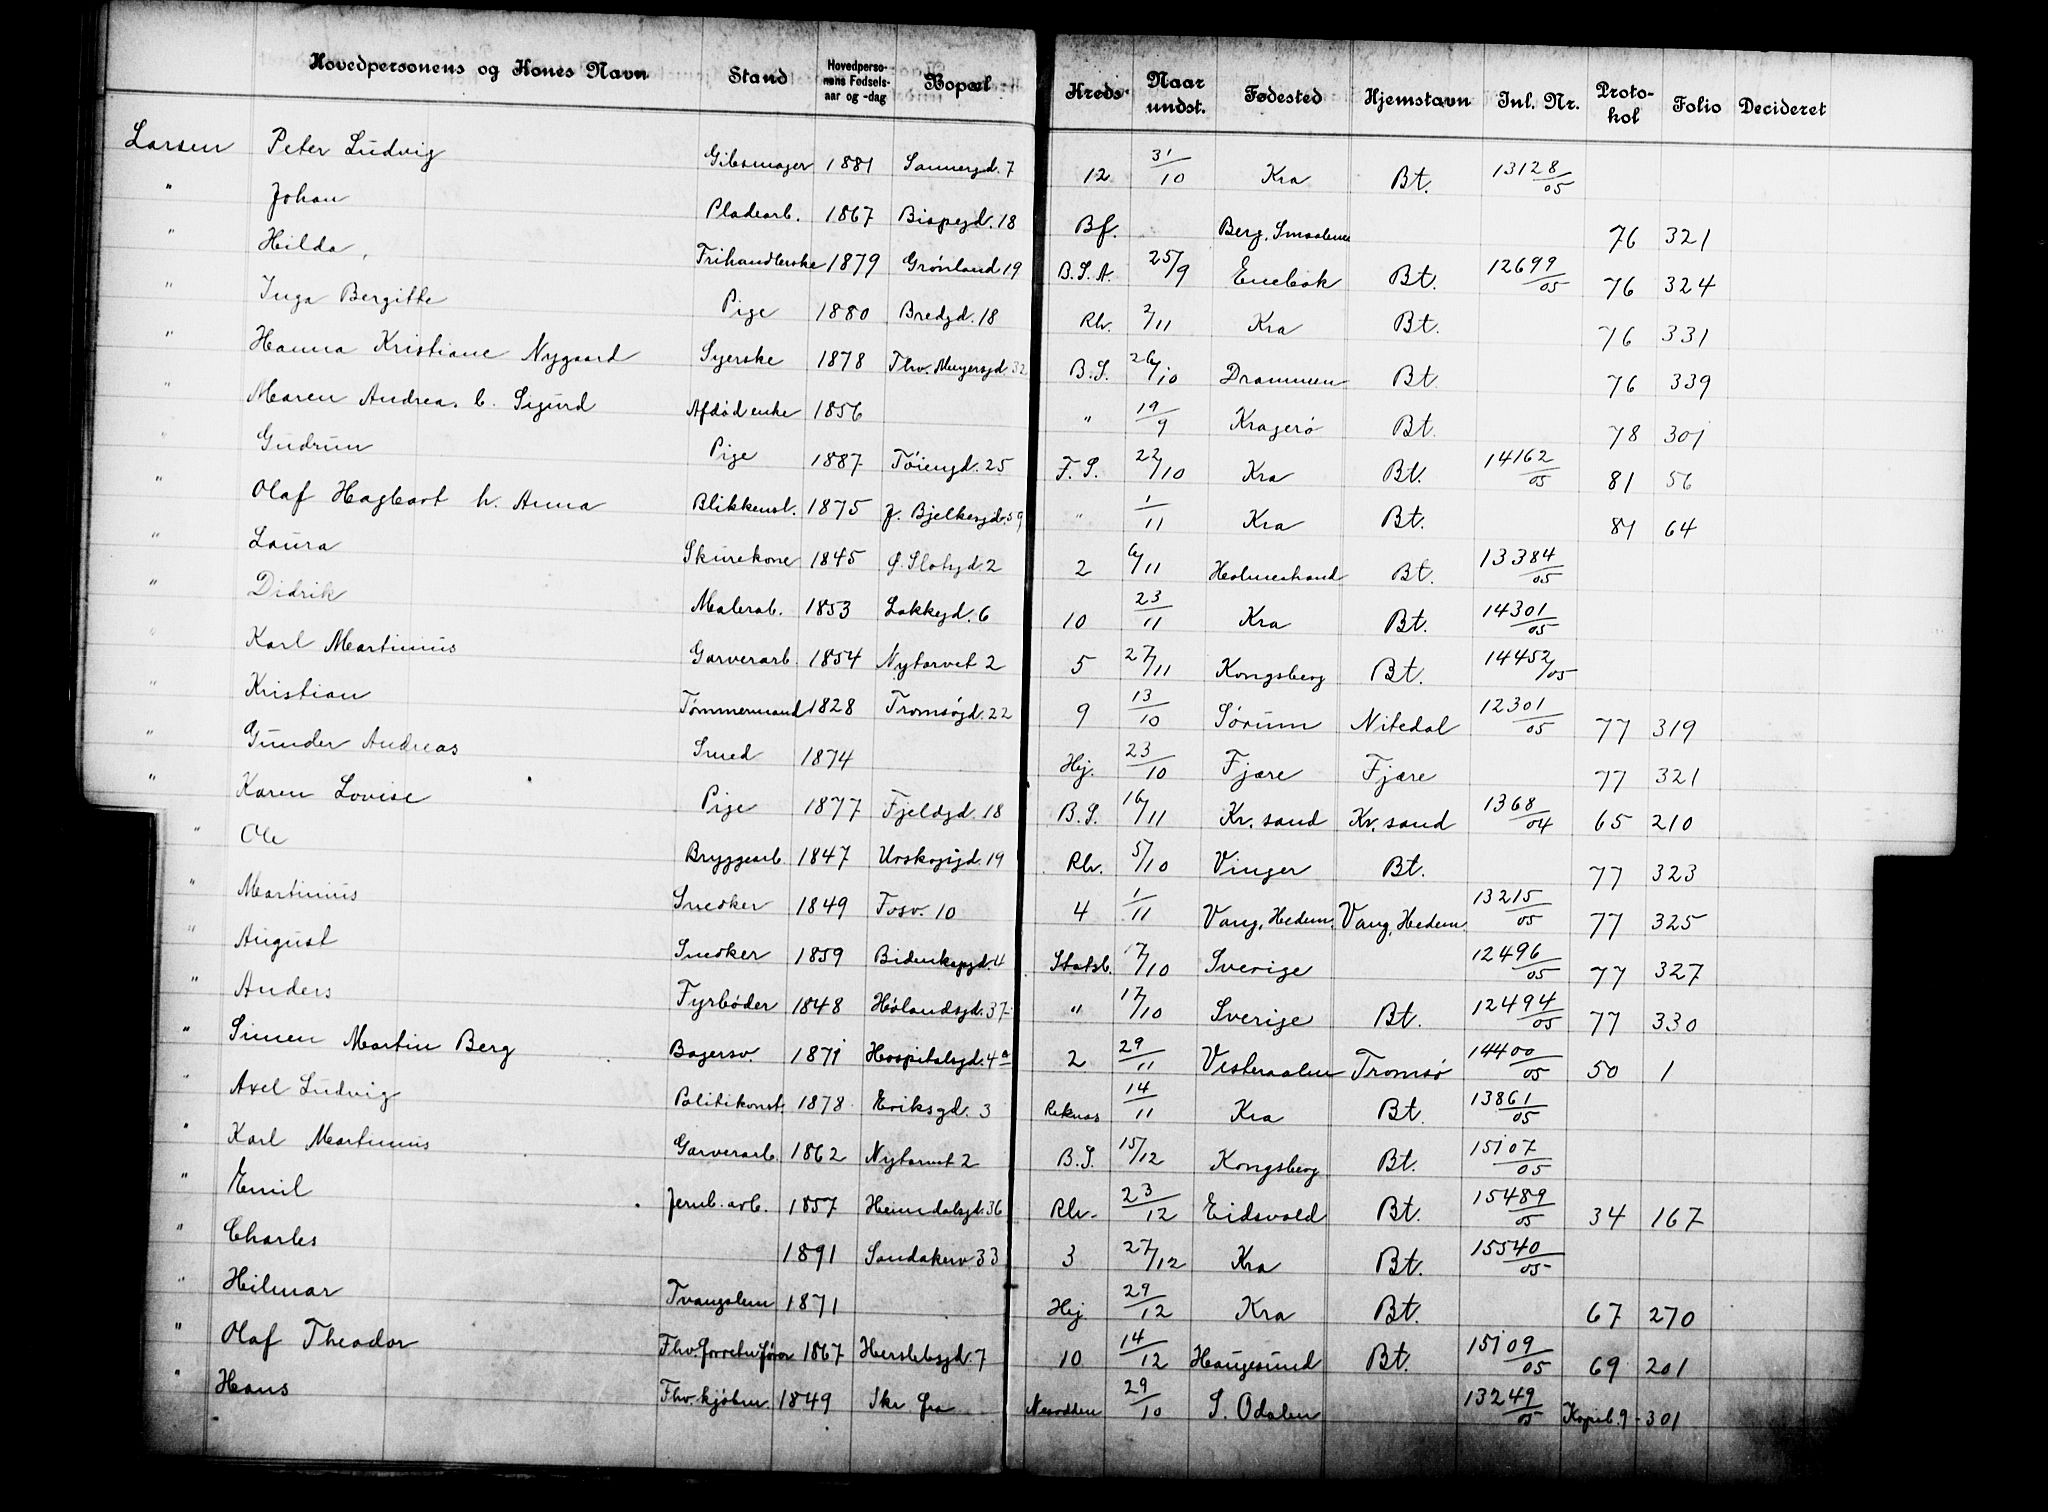 Hovedpersonens og Kones Navn Stand Hovedpersonens Fødselsaar og -dag Bopæl Kreds Naar undst. Fødested Hjemstavn Inl. Nr. Protokol Folio Decideret
Larsen Peter Ludvig Gibsmager 1881 Sannergd. 7 12 31/10 Kra Bt. 13128/05
" Johan Pladearb. 1867 Bispegd. 18 Bf. Berg, Smaalenene 76 321
" Hilda, Frihandlerske 1879 Grønland 19 B.S.A. 25/9 Enebak Bt. 12699/05 76 324
" Inga Bergitte Pige 1880 Bredgd. 18 Rh. 2/11 Kra Bt. 76 331
" Hanna Kristiane Nygaard Syerske 1878 Thv. Meyersgd. 32 B.S. 26/10 Drammen Bt. 76 339
" Maren Andrea, b. Sigurd Afdød enke 1856 " 19/9 Kragerø Bt. 78 301
" Gudrun Pige 1887 Tøiengd. 25 F.S. 22/10 Kra Bt. 14162/05 81 56
" Olaf Hagbart h. Anna Blikkensl. 1875 J. Bjelkesgd. 59 " 1/11 Kra Bt. 81 64
" Laura Skurekone 1845 Ø. Slotsgd. 2 2 6/11 Holmestrand Bt. 13384/05
" Didrik Malerarb. 1853 Lakkegd. 6 10 23/11 Kra Bt. 14301/05
" Karl Martinius Garverarb. 1854 Nytorvet 2 5 27/11 Kongsberg Bt. 14452/05
" Kristian Tømmermand 1828 Tromsøgd. 22 9 13/10 Sørum Nitedal 12301/05 77 319
" Gunder Andreas Smed 1874 Hej. 23/10 Fjære Fjære 77 321
" Karen Lovise Pige 1877 Fjeldgd. 18 B.S. 16/11 Kr.sand Kr.sand 1368/04 65 210
" Ole Bryggearb. 1847 Urskoggd. 19 Rh. 5/10 Vinger Bt. 77 323
" Martinius Snedker 1849 Fosv. 10 4 1/11 Vang, Hedem. Vang, Hedem. 13215/05 77 325
" August Snedker 1859 Bidenkapgd. 4 Statsb. 17/10 Sverige 12496/05 77 327
" Anders Fyrbøder 1848 Hølandsgd. 37 " 17/10 Sverige Bt. 12494/05 77 330
" Simen Martin Berg Bagersv. 1871 Hospitalsgd. 4a 2 29/11 Vesteraalen Tromsø 14400/05 50 1
" Axel Ludvig Politikonst. 1878 Eriksgd. 3 Reknæs 14/11 Kra Bt. 13861/05
" Karl Martinius Garverarb. 1862 Nytorvet 2 B.S. 15/12 Kongsberg Bt. 15107/05
" Emil Jernb. arb. 1857 Heimdalsgd. 36 Rh. 23/12 Eidsvold Bt. 15489/05 34 167
" Charles 1891 Sandakerv. 33 3 27/12 Kra Bt. 15540/05
" Hilmar Tvangslem 1871 Hej 29/12 Kra Bt. 67 270
" Olaf Theodor Fhv. forretn.fører 1867 Herslebsgd. 7 10 14/12 Haugesund Bt. 15109/05 69 201
" Hans Fhv. kjøbm. 1849 Nesodden 29/10 S. Odalen 13249/05 Kopieb. 9 - 301